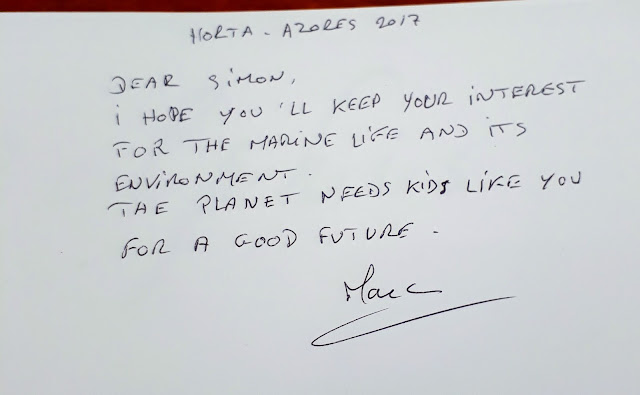 HORTA - AZORES 2017
DEAR SIMON,
i HOPE YOU'LL KEEP YOUR iNTEREST
FOR THE MARINE LIFE AND iTS
ENViRONMENT.
THE PLANET NEEDS KiDS LiKE YOU
FOR A GOOD FUTURE.
Marc